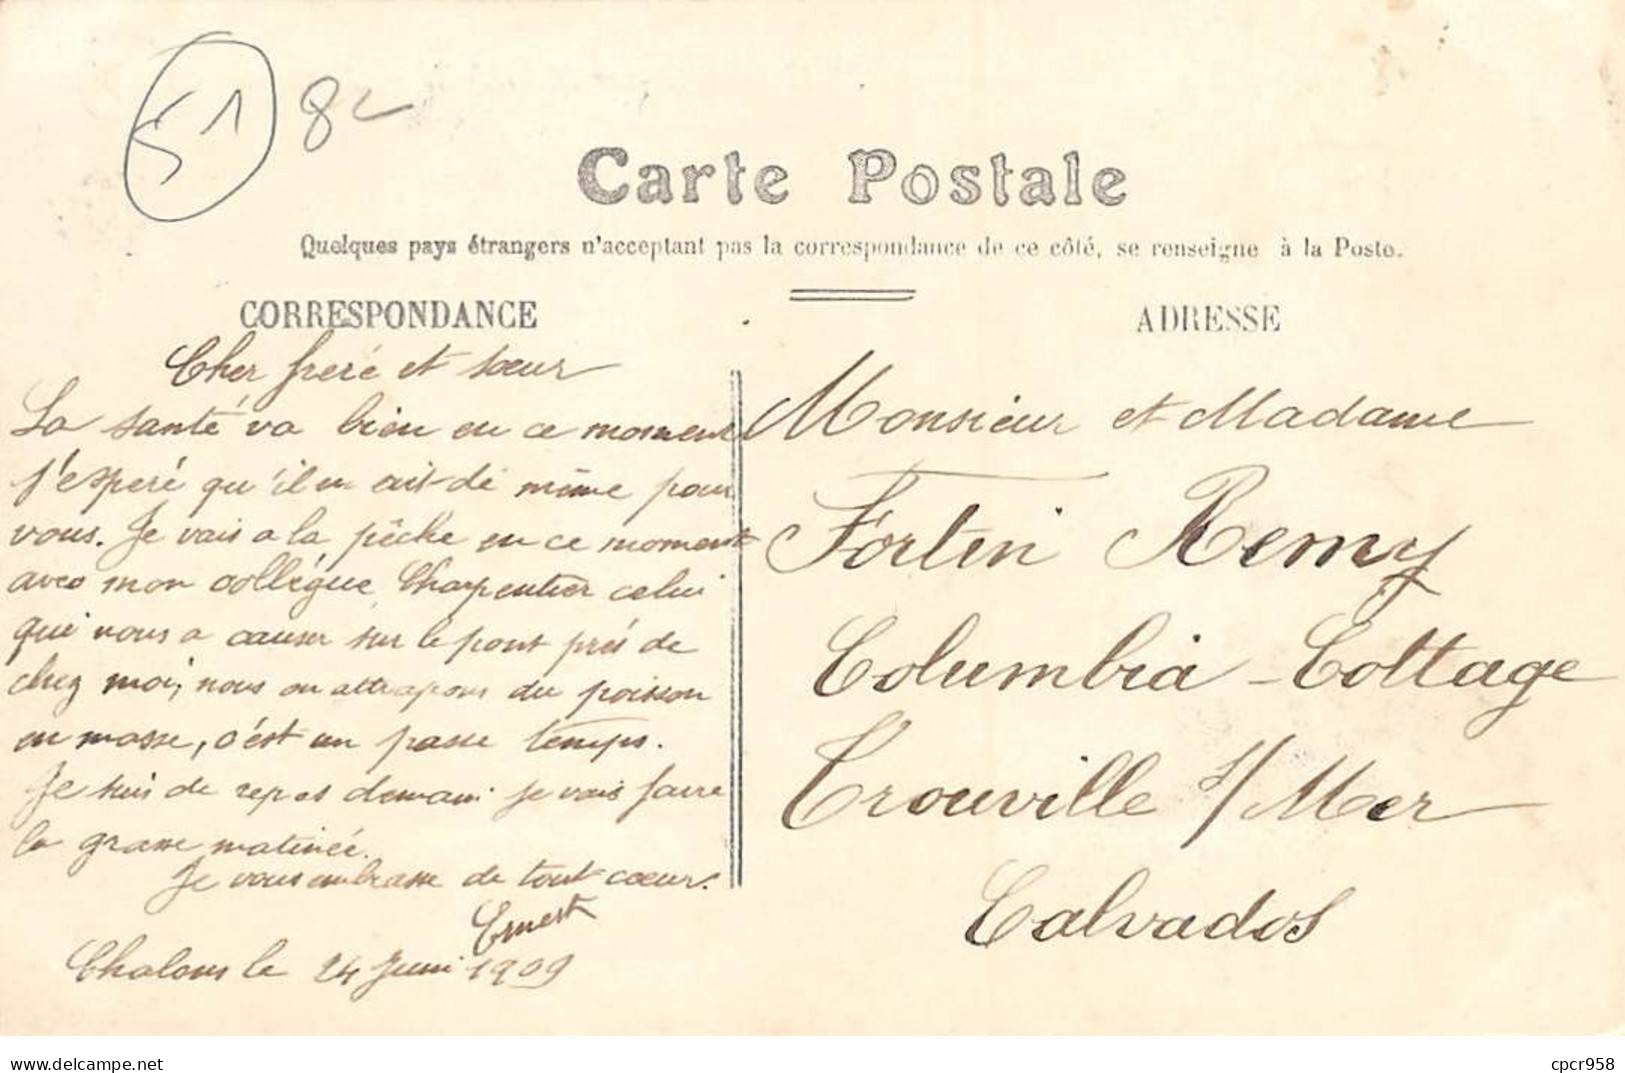 51 8
Carte Postale
Quelques pays étrangers n'acceptant pas la correspondance de ce côté, se renseigne à la Poste.
CORRESPONDANCE
Cher freré et sœur
La santé va bien en ce moment
j'esperé qu'il en ait dé même pour
vous. Je vais a la pêche en ce moment
avec mon collégue Charpentier celui
qui vous a causer sur le pont prés de
chez moi, nous en attrapons du poisson
en masse, c'est un passe temps.
Je suis de repos demain je vais faire
la grasse matinée.
Je vous embrasse de tout cœur.
Ernest
Chalons le 24 Juin 1909
ADRESSE
Monsieur et Madame
Fortin Remy
Columbia - Cottage
Trouville s/Mer
Calvados
https://www.delcampe.net
cpcr958